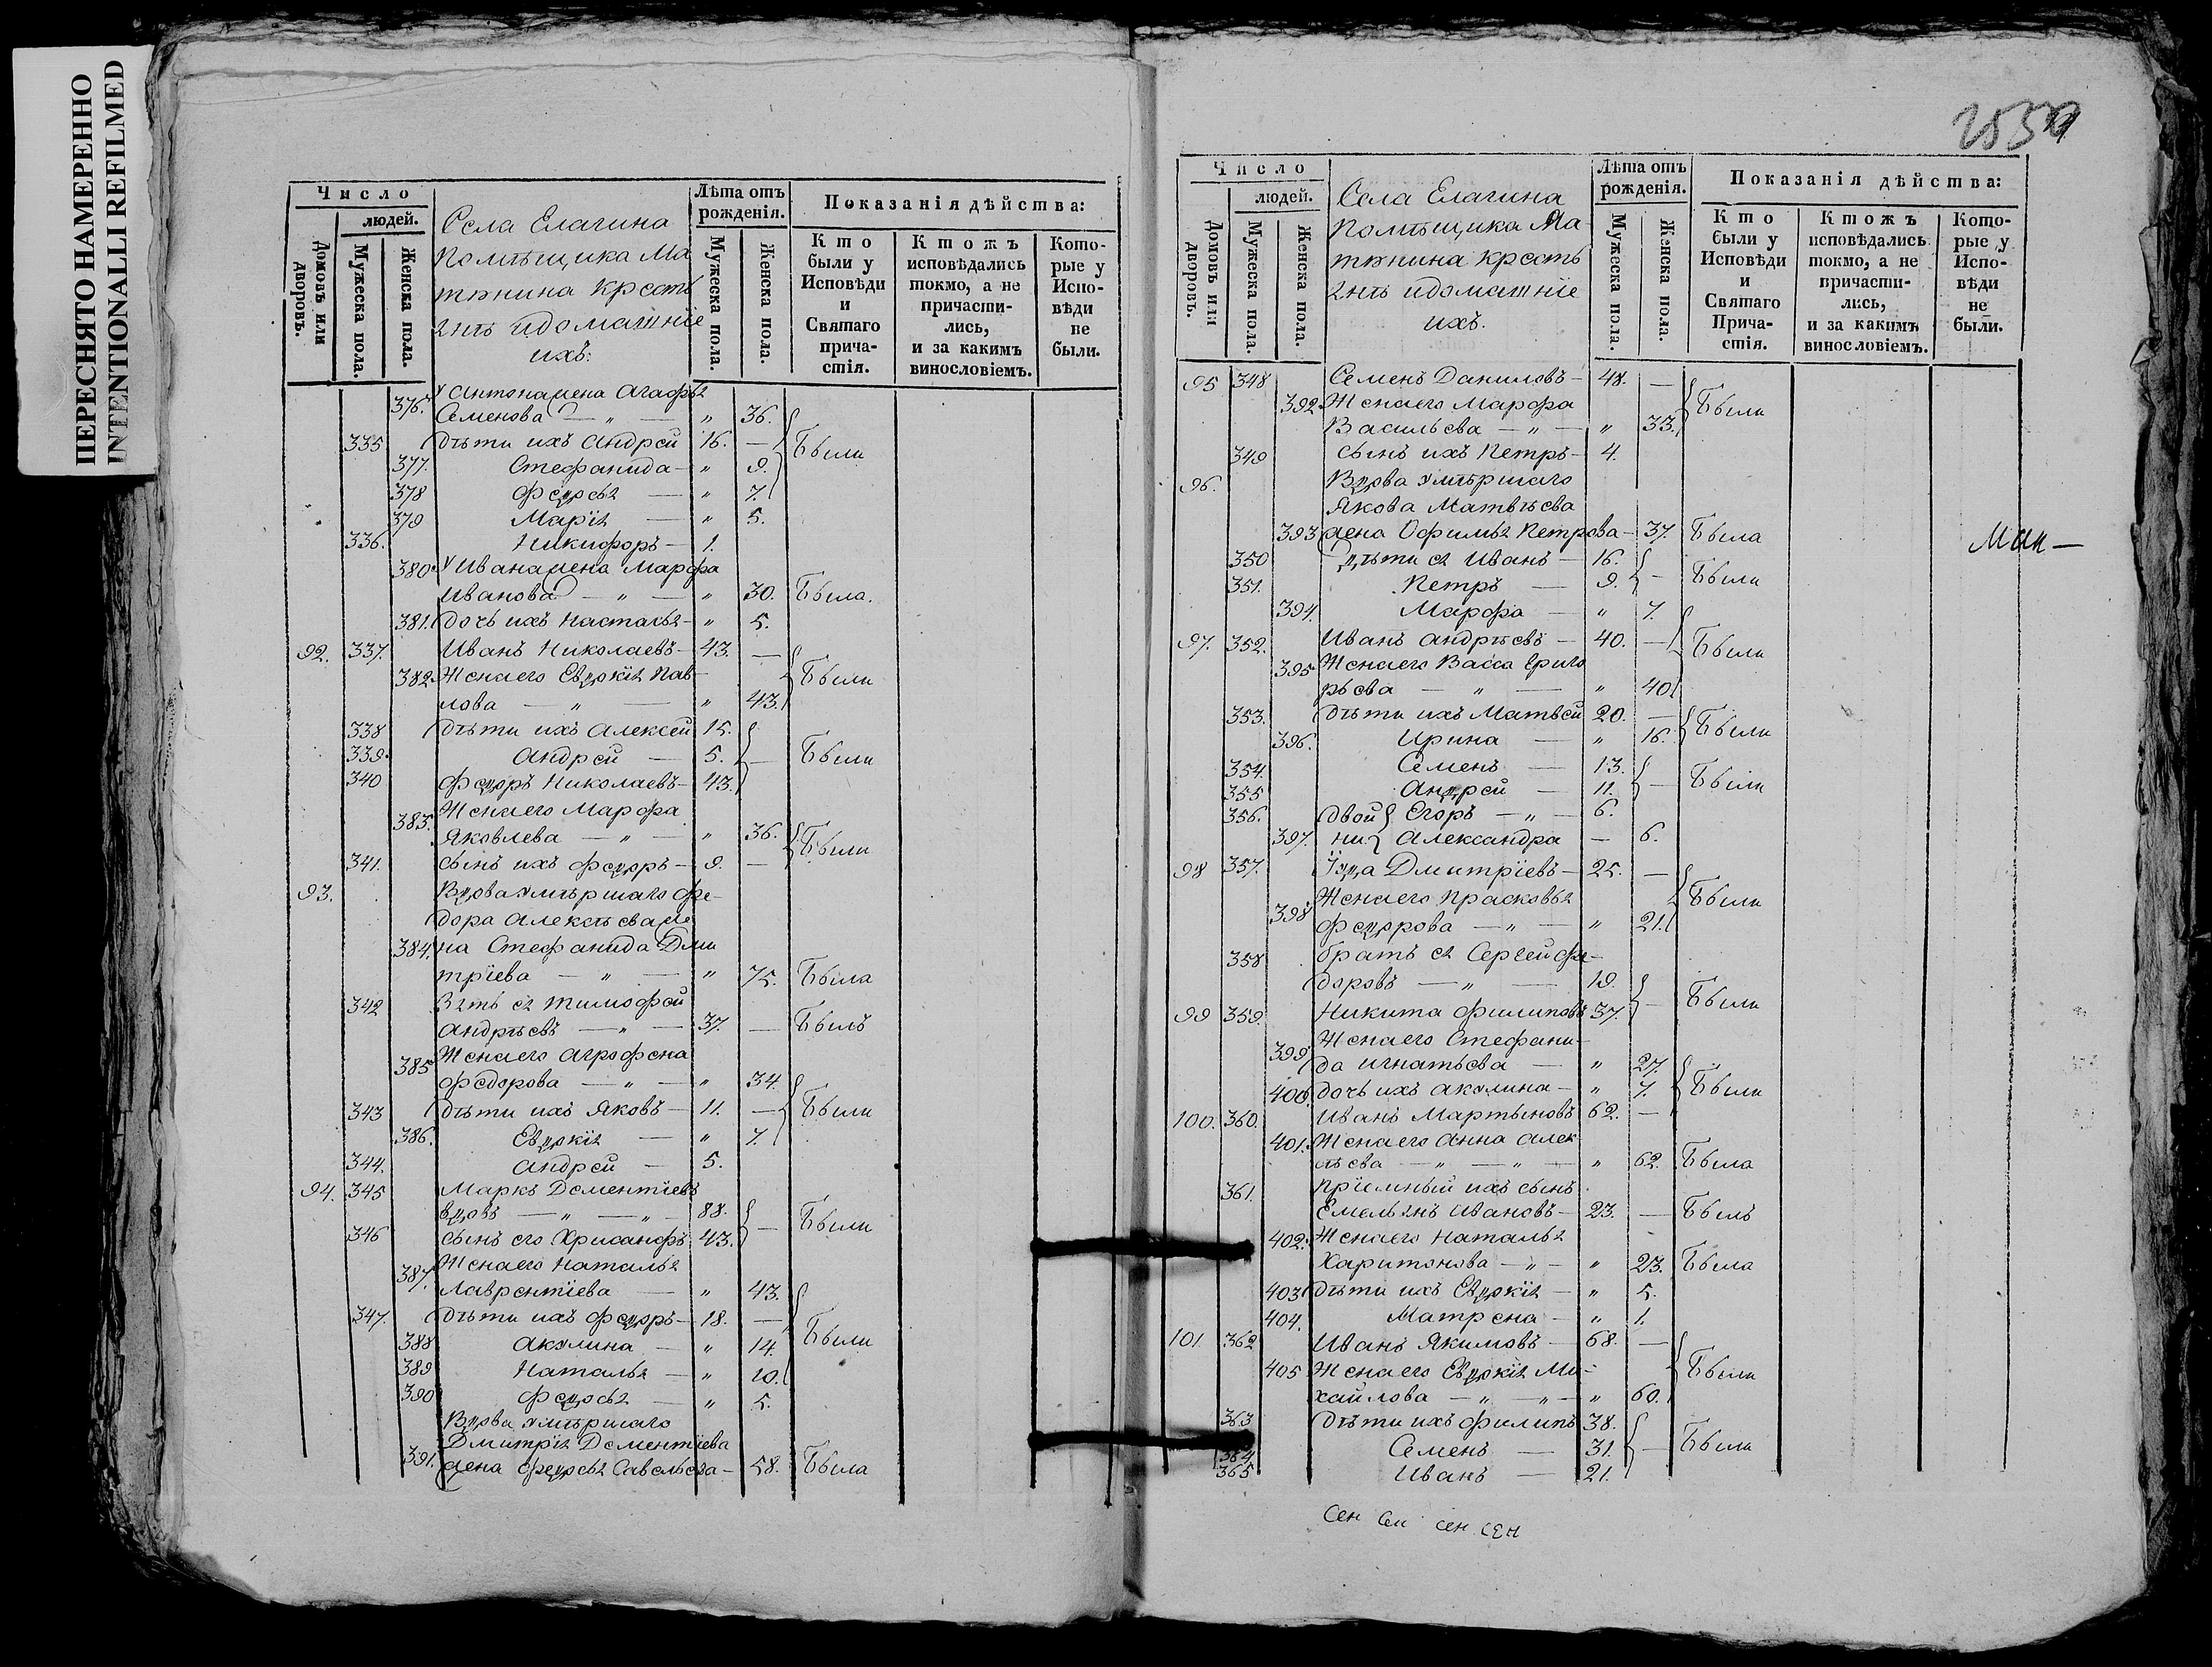 ПЕРЕСНЯТО НАМЕРЕННО
INTENTIONALLI REFILMED
Число
людей.
Домовъ или дворовъ.
Мужеска пола.
Женска пола.
Села Елагина
Помѣщика Ма
тюнина кресть
янѣ идомашніе
ихъ:
Лѣта отъ рожденія.
Мужеска пола.
Женска пола.
Показанія дѣйства:
Кто были у Исповѣди и Святаго причастія.
Ктожъ исповѣдались токмо, а не причастились, и за какимъ винословіемъ.
Которые у Исповѣди не были.
376. У Антона жена Агафья
Семенова — „ — „ 36.
335 дѣти ихъ Андрей 16. — Были
377. Стефанида — „ 9.
378 Федосья — „ 7.
379 Марія — „ 5.
336. Никифоръ — 1.
380 У Ивана жена Марфа
Иванова — „ — „ 30. Была.
381. дочь ихъ Настасья — „ 5.
92. 337. Иванъ Николаевъ — 43. —
382 Жена его Евдокія Пав- Были
лова — „ — „ 43.
338 дѣти ихъ Алексей 15.
339 Андрей — 5. — Были
340 Федоръ Николаевъ — 43.
383. Жена его Марфа
Яковлева — „ — „ 36. Были
341. сынъ ихъ Федоръ — 9. —
93. Вдова умѣршаго Фе-
дора Алексѣева же
384. на Стефанида Дми
тріева — „ — „ 75. Была
342 Зять ея Тимофей
Андрѣевъ — „ — 37. — Былъ
385 Жена его Агрофена
Федорова — „ — „ 34.
343 дѣти ихъ Яковъ — 11. — Были
386. Евдокія — „ 7.
344. Андрей — 5.
94. 345 Маркъ Дементіевъ
вдовъ — „ — „ — 88. Были
346 сынъ его Хрисанфъ 43. —
387. Жена его Наталья
Лаврентіева — „ 43.
347. дѣти ихъ Федоръ — 18. —
388 Акулина — „ 14. Были
389 Наталья — „ 10.
390 Федосья — „ 5.
Вдова умѣршаго
Дмитрія Дементіева
391. жена Федосья Савельева — 58. Была
Число
людей.
Домовъ или дворовъ.
Мужеска пола.
Женска пола.
Села Елагина
Помѣщика Ма
тюнина кресть
янѣ идомашніе
ихъ.
Лѣта отъ рожденія.
Мужеска пола.
Женска пола.
Показанія дѣйства:
Кто были у Исповѣди и Святаго Причастія.
Ктожъ исповѣдались токмо, а не причастились, и за какимъ винословіемъ.
Которые у Исповѣди не были.
95 348 Семенъ Даниловъ — 48. —
392 Жена его Марфа Были
Васильева — „ — „ 33.
349 сынъ ихъ Петръ — 4.
96. Вдова умѣршаго
Якова Матвѣева
393 жена Офимья Петрова — 37. Была
350 дѣти ея Иванъ — 16.
351. Петръ — 9. — Были
394. Марфа — „ 7.
97. 352. Иванъ Андрѣевъ — 40. — Были
395 Жена его Васса Григо
рьева — „ — „ 40
353. дѣти ихъ Матвей 20. — Были
396. Ирина — „ 16.
354. Семенъ — 13.
355 Андрей — 11. — Были
356. двой Егоръ — „ — 6.
397. ни Александра — 6.
98 357. Іуда Дмитріевъ — 25. —
398 Жена его Прасковья Были
Федорова — „ — „ 21.
358 братъ ея Сергей Фе-
доровъ — „ — 19.
99 359. Никита Филиповъ 37. — Были
399 Жена его Стефани-
да Игнатьева — „ 27.
400. дочь ихъ Акулина — „ 7. Были
100. 360. Иванъ Мартыновъ 62. —
401. Жена его Анна Алек
ѣева — „ — „ — „ 62. Была
361. пріемный ихъ сынъ
Емельянъ Ивановъ — 23. — Былъ
402. Жена его Наталья
Харитонова — „ — „ 23. Была
403 дѣти ихъ Евдокія — „ 5.
404. Матрена — „ 1.
101 362 Иванъ Якимовъ — 68. —
405 Жена его Евдокія Ми- Были
хайлова — „ — „ — „ 60.
363 дѣти ихъ Филипъ 38.
364 Семенъ — 31. — Были
365 Иванъ — 21.
сен сен сен сен